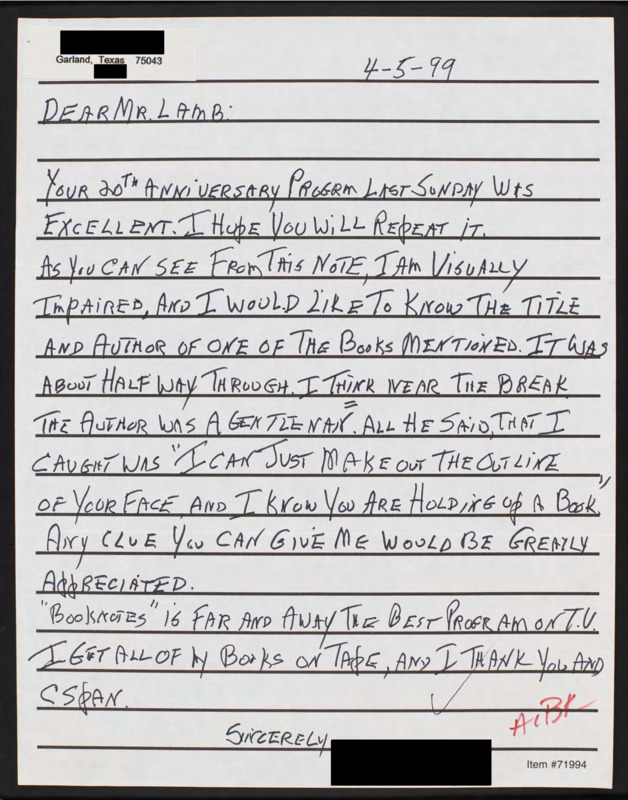 Garland, Texas 75043
4-5-99
DEAR MR. LAMB:
YOUR 20TH ANNIVERSARY PROGRM LAST SUNDAY WAS
EXCELLENT. I HOPE YOU WILL REPEAT IT.
AS YOU CAN SEE FROM THIS NOTE, I AM VISUALLY
IMPAIRED, AND I WOULD LIKE TO KNOW THE TITLE
AND AUTHOR OF ONE OF THE BOOKS MENTIONED. IT WAS
ABOUT HALF WAY THROUGH. I THINK NEAR THE BREAK
THE AUTHOR WAS A GENTLENAN. ALL HE SAID, THAT I
CAUGHT WAS "I CAN JUST MAKE OUT THE OUTLINE
OF YOUR FACE, AND I KNOW YOU ARE HOLDING UP A BOOK."
ANY CLUE YOU CAN GIVE ME WOULD BE GREATLY
APPRECIATED.
"BOOKNOTES" IS FAR AND AWAY THE BEST PROGRAM ON T.V.
I GET ALL OF MY BOOKS ON TAPE, AND I THANK YOU AND
CSPAN.
SINCERELY
Item #71994